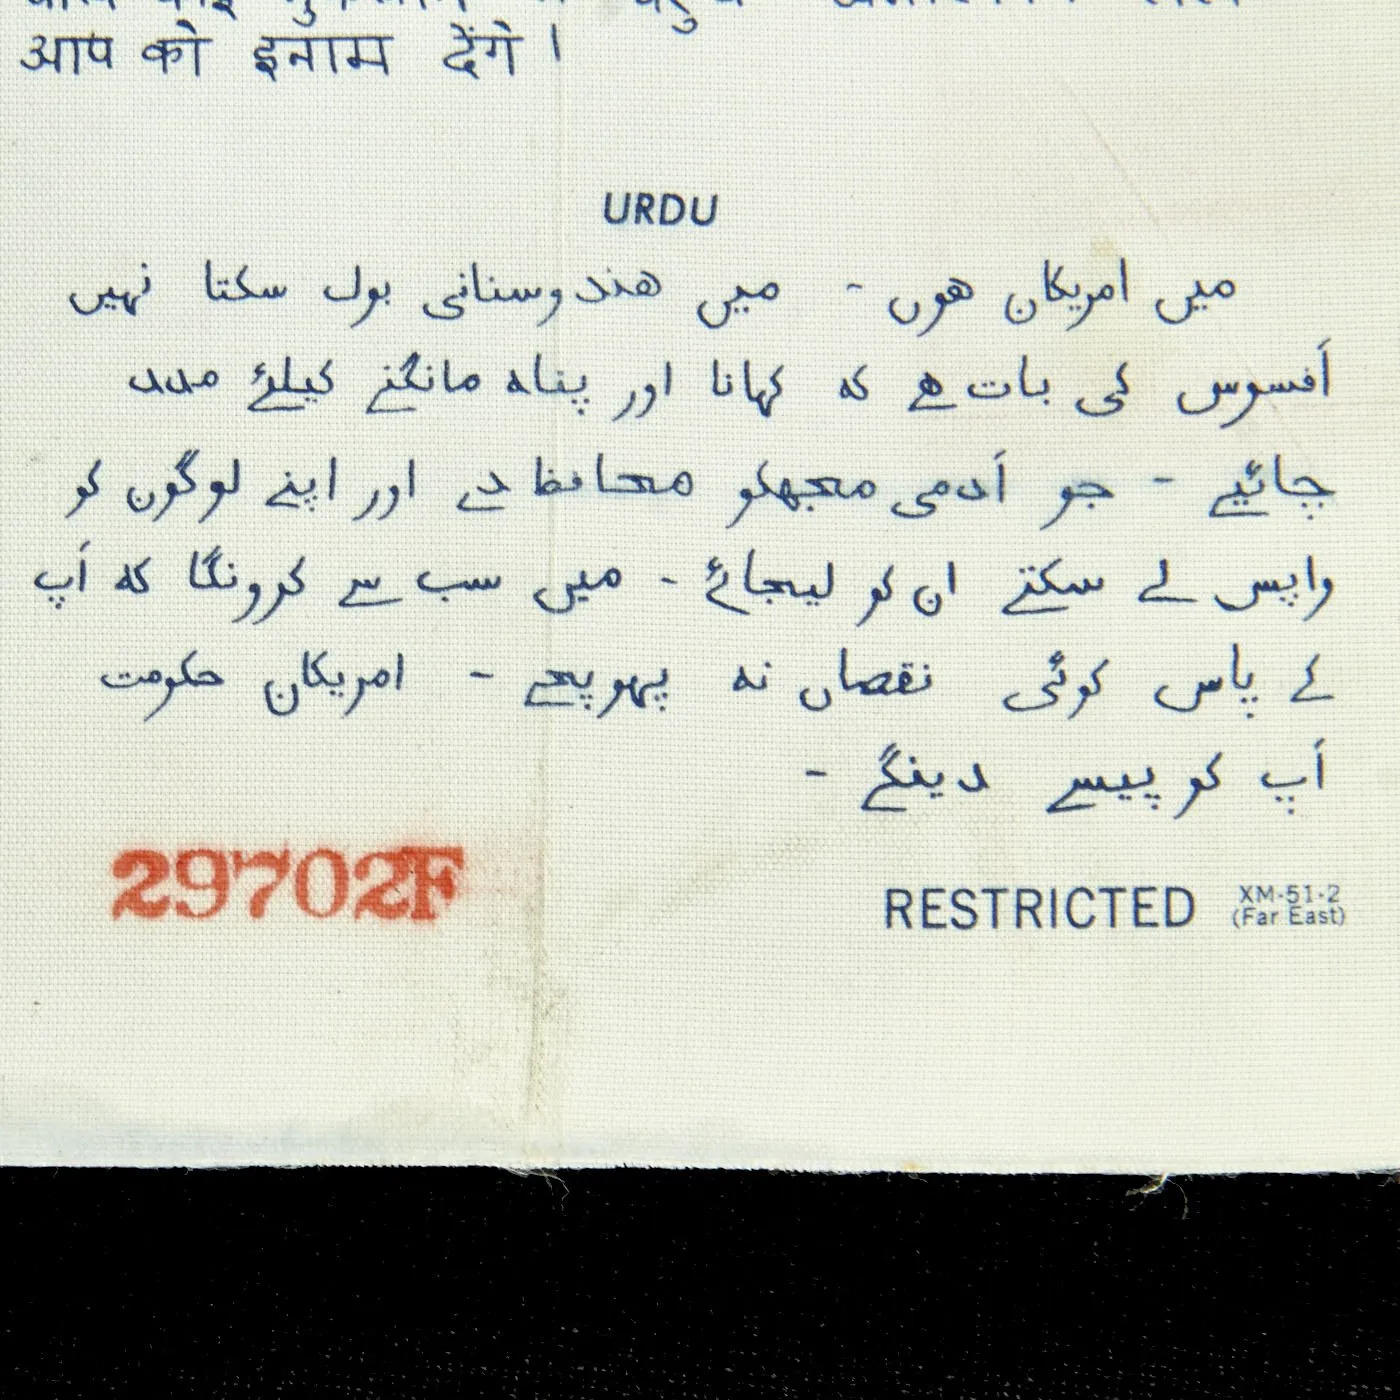 आप को इनाम देंगे।
URDU
میں امریکان ھوں - میں ھندوستانی بول سکتا نہیں
اَفسوس کی بات ھے کہ کھانا اور پناہ مانگنے کیلئے مدد
چائیے - جو اَدمی مجھکو محافظ دے اور اپنے لوگوں کو
واپس لے سکتے ان کو لیجائے - میں سب سے کرونگا کہ اَپ
کے پاس کوئی نقصان نہ پہوپچے - امریکان حکومت
اَپ کو پیسے دینگے -
29702F
RESTRICTED XM-51-2
(Far East)